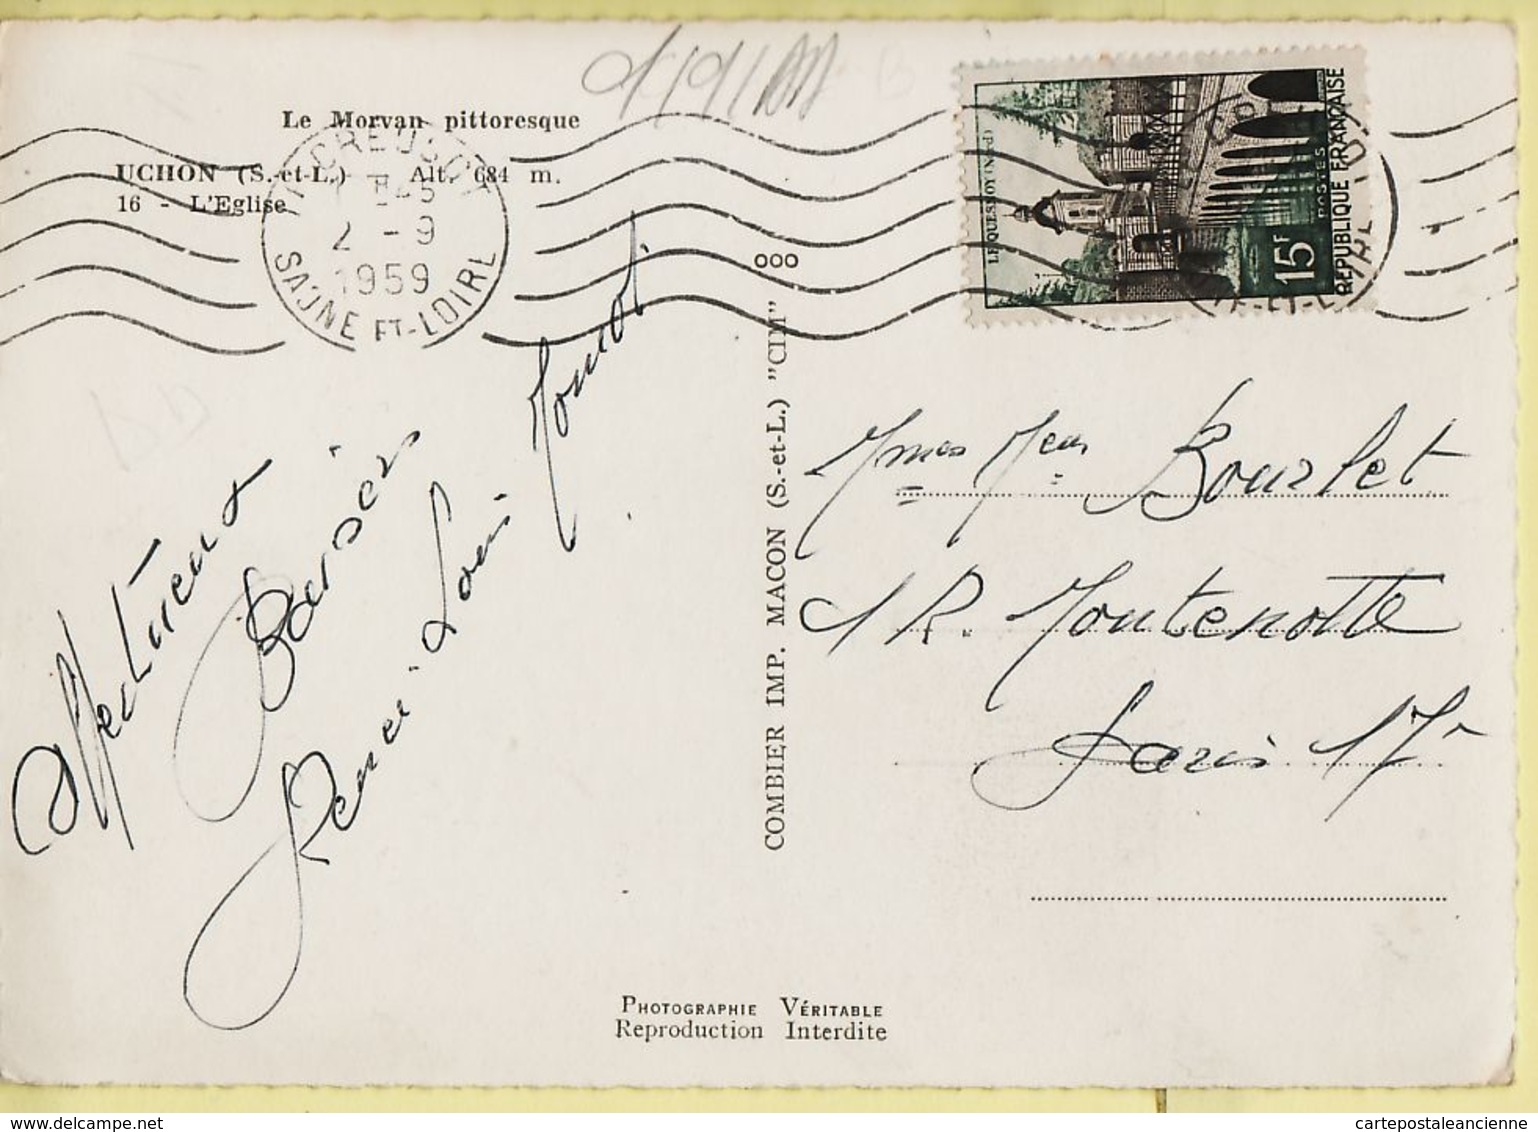 Le Morvan pittoresque
UCHON (S.-et-L.) - Alt. 684 m.
16 - L'Eglise
LE CREUSOT
2 - 9
1959
SAONE ET-LOIRE
LE QUESNOY (Nord)
15F
POSTES
REPUBLIQUE FRANÇAISE
ooo
COMBIER IMP. MACON (S.-et-L.) "CIM"
affectueux
Baisers
Mmes Bourlet
1 R. Montenotte
Paris 17e
PHOTOGRAPHIE VÉRITABLE
Reproduction Interdite
cartepostaleancienne